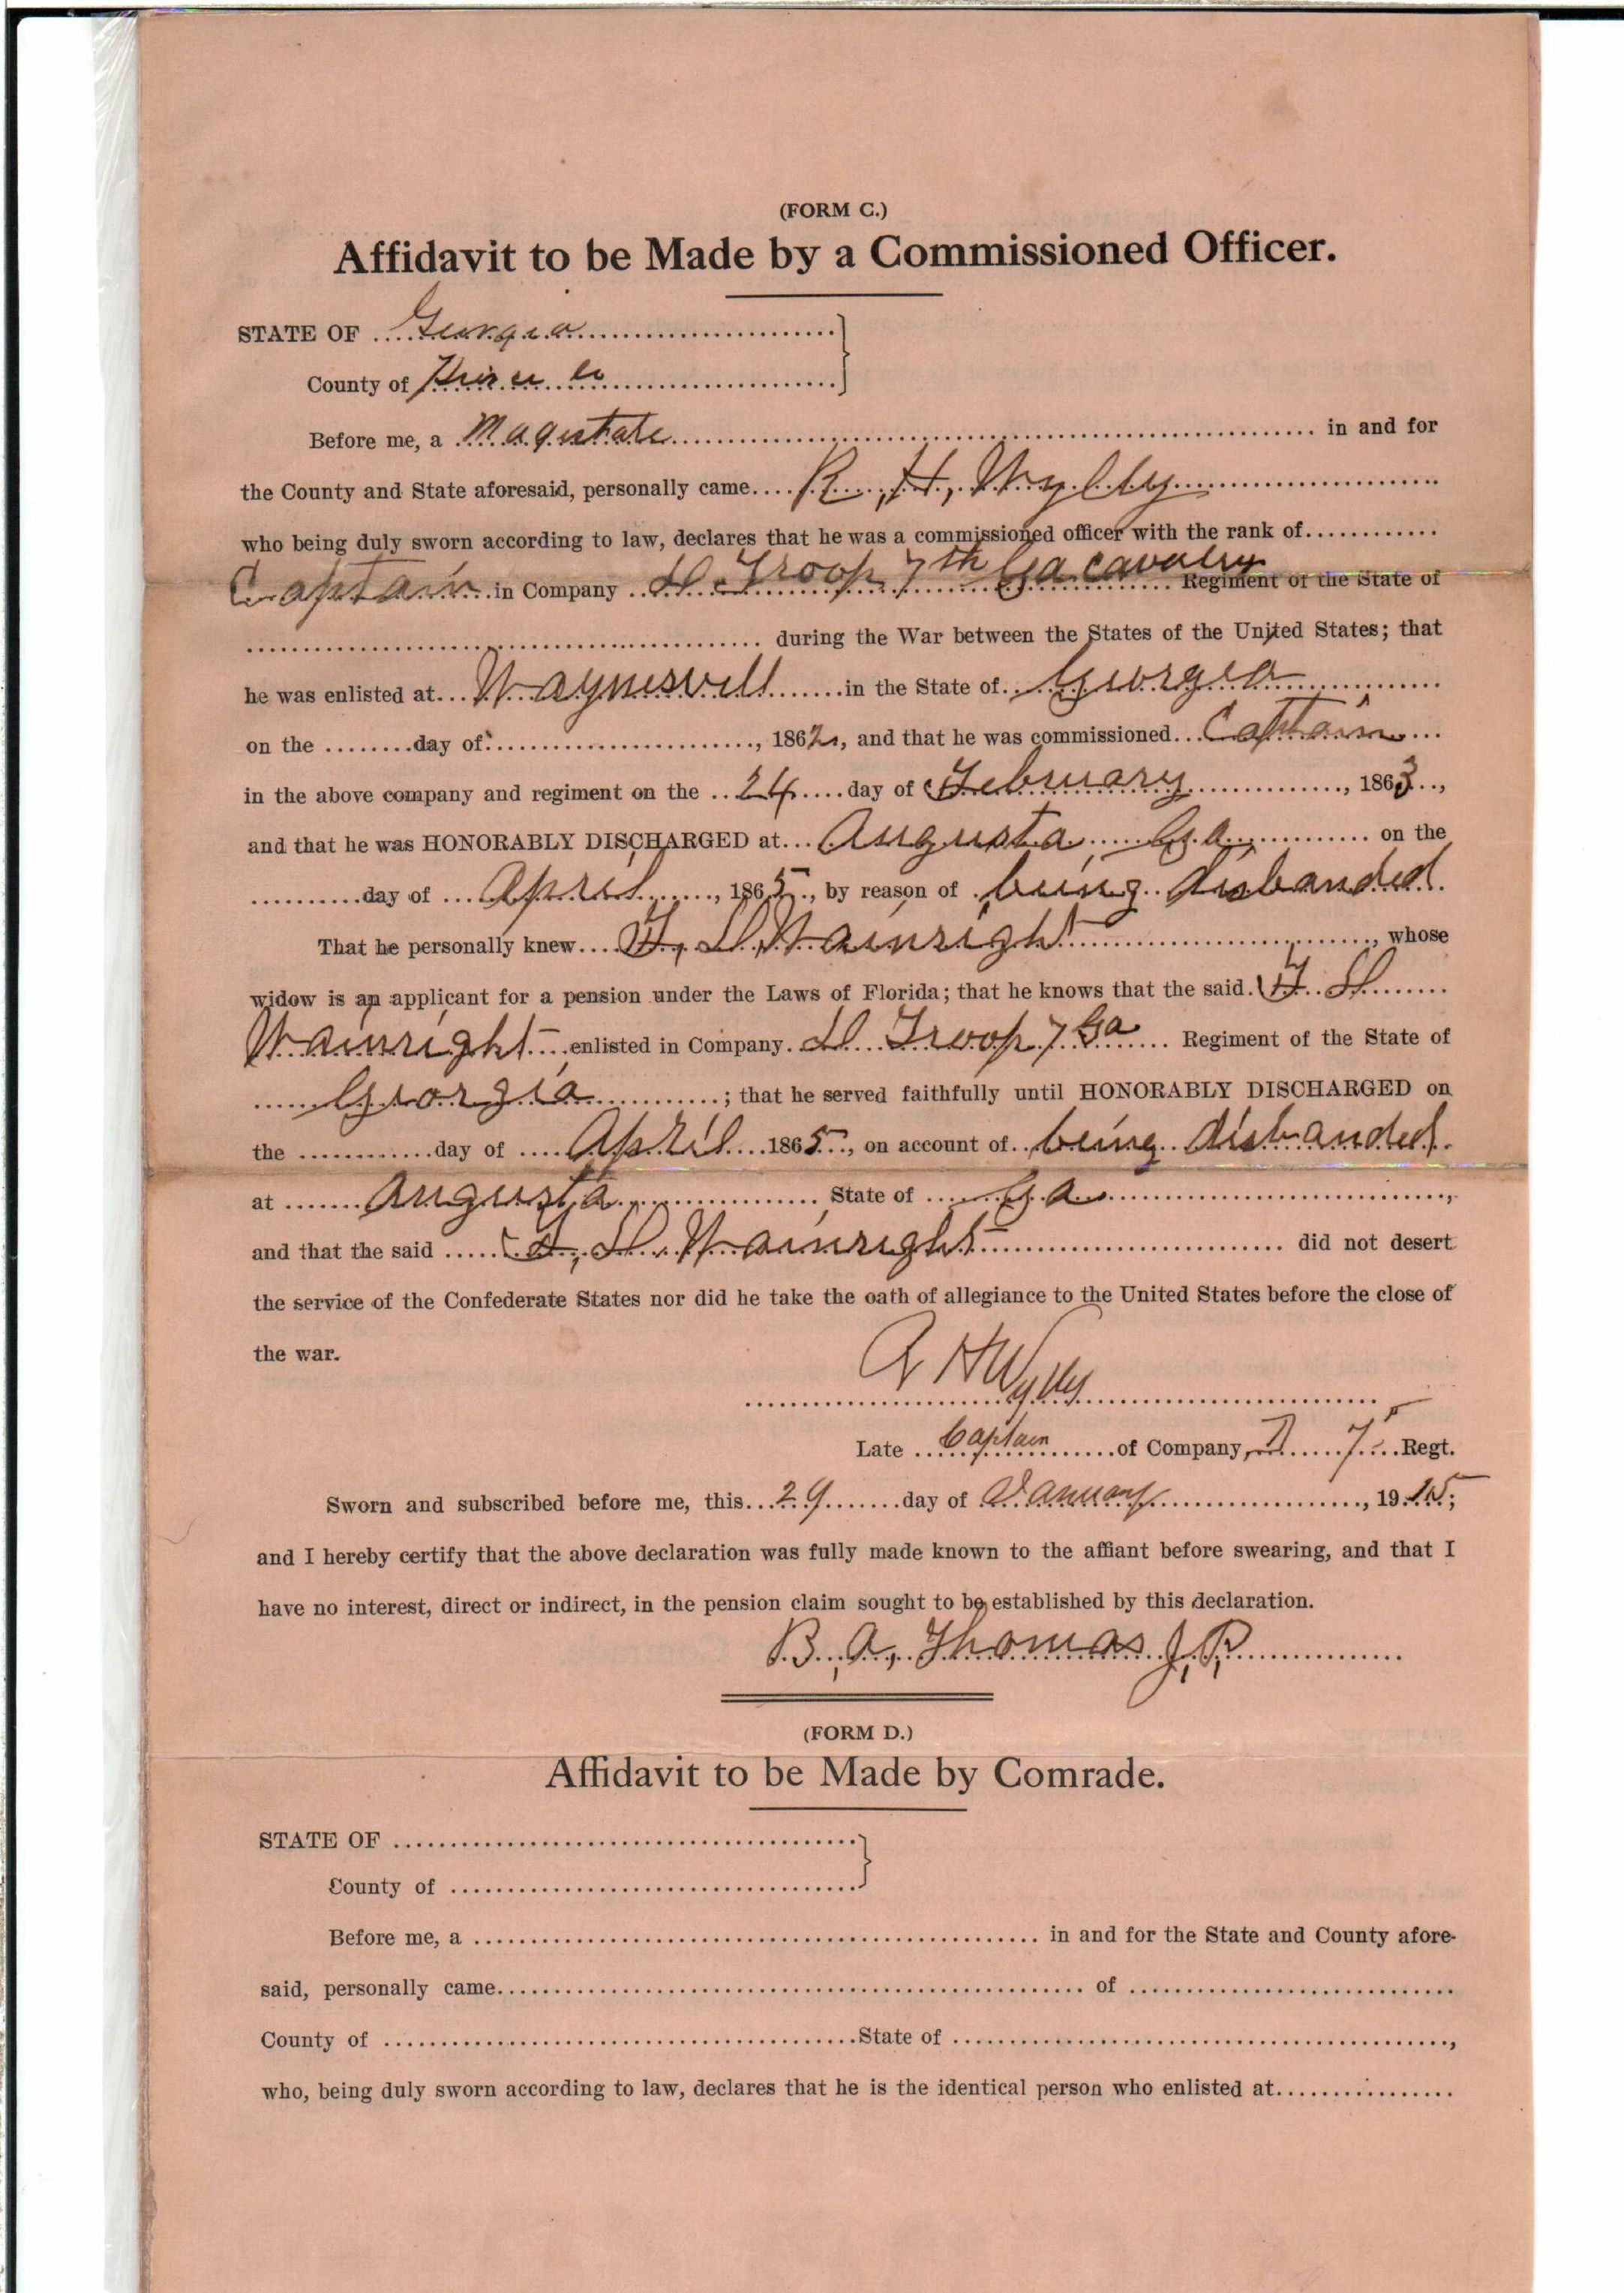 (FORM C.)
Affidavit to be Made by a Commissioned Officer.
STATE OF Georgia
County of Pierce Co
Before me, a Magistrate in and for
the County and State aforesaid, personally came R, H, Wylly
who being duly sworn according to law, declares that he was a commissioned officer with the rank of
Captain in Company D. Troop 7th Ga cavalry Regiment of the State of
during the War between the States of the United States; that
he was enlisted at Waynesvill in the State of Georgia
on the day of , 1862, and that he was commissioned Captain
in the above company and regiment on the 24 day of February , 1863,
and that he was HONORABLY DISCHARGED at Augusta Ga. on the
day of April , 1865, by reason of being disbanded.
That he personally knew D. Wainright , whose
widow is an applicant for a pension under the Laws of Florida; that he knows that the said D
Wainright enlisted in Company D Troop 7 Ga Regiment of the State of
Georgia ; that he served faithfully until HONORABLY DISCHARGED on
the day of April 1865, on account of being disbanded.
at Augusta, State of Ga. ,
and that the said D. Wainright did not desert
the service of the Confederate States nor did he take the oath of allegiance to the United States before the close of
the war.
R H Wylly
Late Captain of Company, D 7 Regt.
Sworn and subscribed before me, this 29 day of January , 1915;
and I hereby certify that the above declaration was fully made known to the affiant before swearing, and that I
have no interest, direct or indirect, in the pension claim sought to be established by this declaration.
B. A, Thomas J, P,
(FORM D.)
Affidavit to be Made by Comrade.
STATE OF
County of
Before me, a in and for the State and County afore-
said, personally came of
County of State of ,
who, being duly sworn according to law, declares that he is the identical person who enlisted at